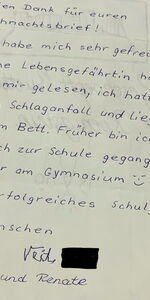 en Dank für euren
hnachtsbrief!
habe mich sehr gefre
ne Lebensgefährtin h
mir gelesen, ich hatt
Schlaganfall und lie
m Bett. Früher bin ic
ch zur Schule gegang
r am Gymnasium
rfolgreiches Schul
nschen
Veit
und Renate